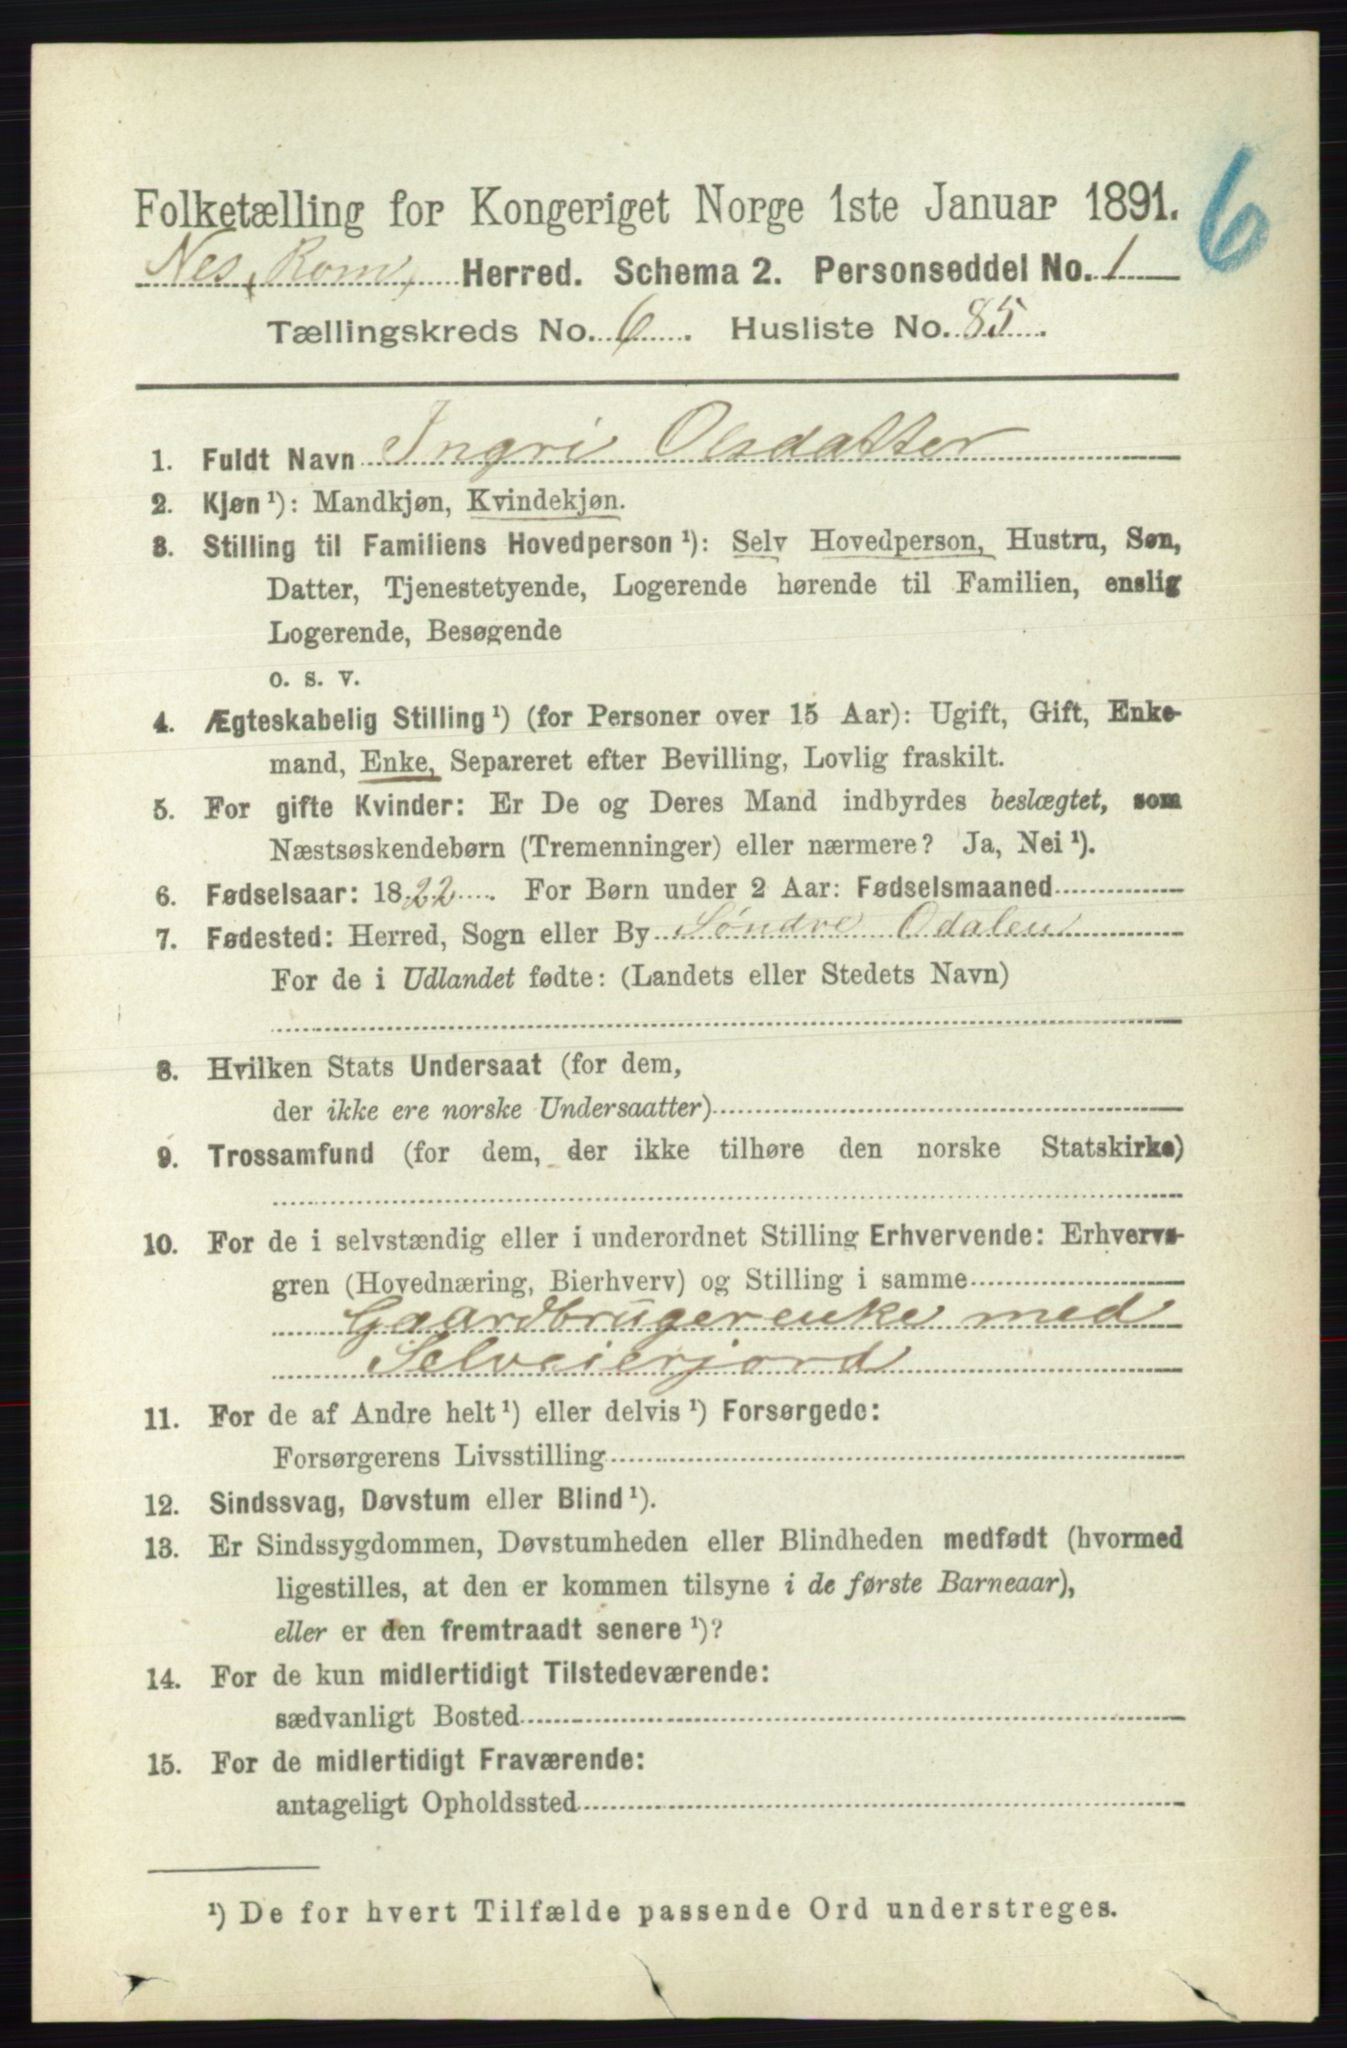 Folketælling for Kongeriget Norge 1ste Januar 1891.
6
Nes, Rom, Herred. Schema 2. Personseddel No. 1
Tællingskreds No. 6. Husliste No. 85.
1. Fuldt Navn Ingri Olsdatter
2. Kjøn¹): Mandkjøn, Kvindekjøn.
3. Stilling til Familiens Hovedperson¹): Selv Hovedperson, Hustru, Søn,
Datter, Tjenestetyende, Logerende hørende til Familien, enslig
Logerende, Besøgende
o. s. v.
4. Ægteskabelig Stilling¹) (for Personer over 15 Aar): Ugift, Gift, Enke-
mand, Enke, Separeret efter Bevilling, Lovlig fraskilt.
5. For gifte Kvinder: Er De og Deres Mand indbyrdes beslægtet, som
Næstsøskendebørn (Tremenninger) eller nærmere? Ja, Nei¹).
6. Fødselsaar: 1822. For Børn under 2 Aar: Fødselsmaaned
7. Fødested: Herred, Sogn eller By Søndre Odalen
For de i Udlandet fødte: (Landets eller Stedets Navn)
8. Hvilken Stats Undersaat (for dem,
der ikke ere norske Undersaatter)
9. Trossamfund (for dem, der ikke tilhøre den norske Statskirke)
10. For de i selvstændig eller i underordnet Stilling Erhvervende: Erhvervs-
gren (Hovednæring, Bierhverv) og Stilling i samme
Gaardbrugerenke med
Selveierjord
11. For de af Andre helt¹) eller delvis¹) Forsørgede:
Forsørgerens Livsstilling
12. Sindssvag, Døvstum eller Blind¹).
13. Er Sindssygdommen, Døvstumheden eller Blindheden medfødt (hvormed
ligestilles, at den er kommen tilsyne i de første Barneaar),
eller er den fremtraadt senere¹)?
14. For de kun midlertidigt Tilstedeværende:
sædvanligt Bosted
15. For de midlertidigt Fraværende:
antageligt Opholdssted
¹) De for hvert Tilfælde passende Ord understreges.